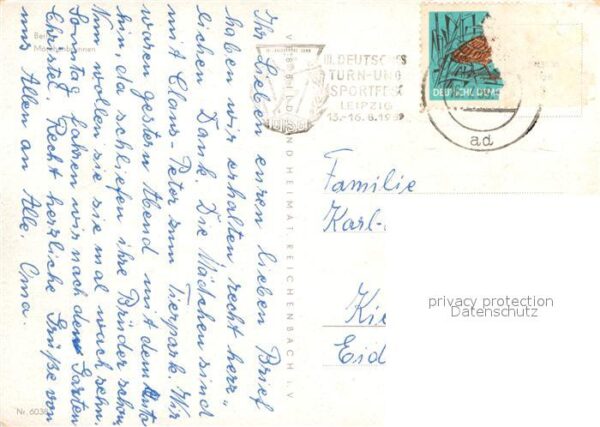 Ber
Mä
brunnen
Ihr Lieben euren lieben Brief
haben wir erhalten recht herz-
lichen Dank. Die Mädchen sind
mit Claus-Peter zum Tierpark. Wir
waren gestern Abend mit dem Auto
hin, da schliefen ihre Brüder schon,
Nun wollen sie sie mal wach sehn.
Sonntag fahren wir nach dem Garten
Christel. Recht herzliche Grüße von
uns Allen an Alle. Oma.
Nr. 6038
VEB BILD UND HEIMAT REICHENBACH i. V
III. DEUTSCHES
TURN- UND
SPORTFEST
LEIPZIG
13.-16.8.1959
DEUTSCHE DEMO
ad
Familie
Karl-
Kie
Eid
privacy protection
Datenschutz